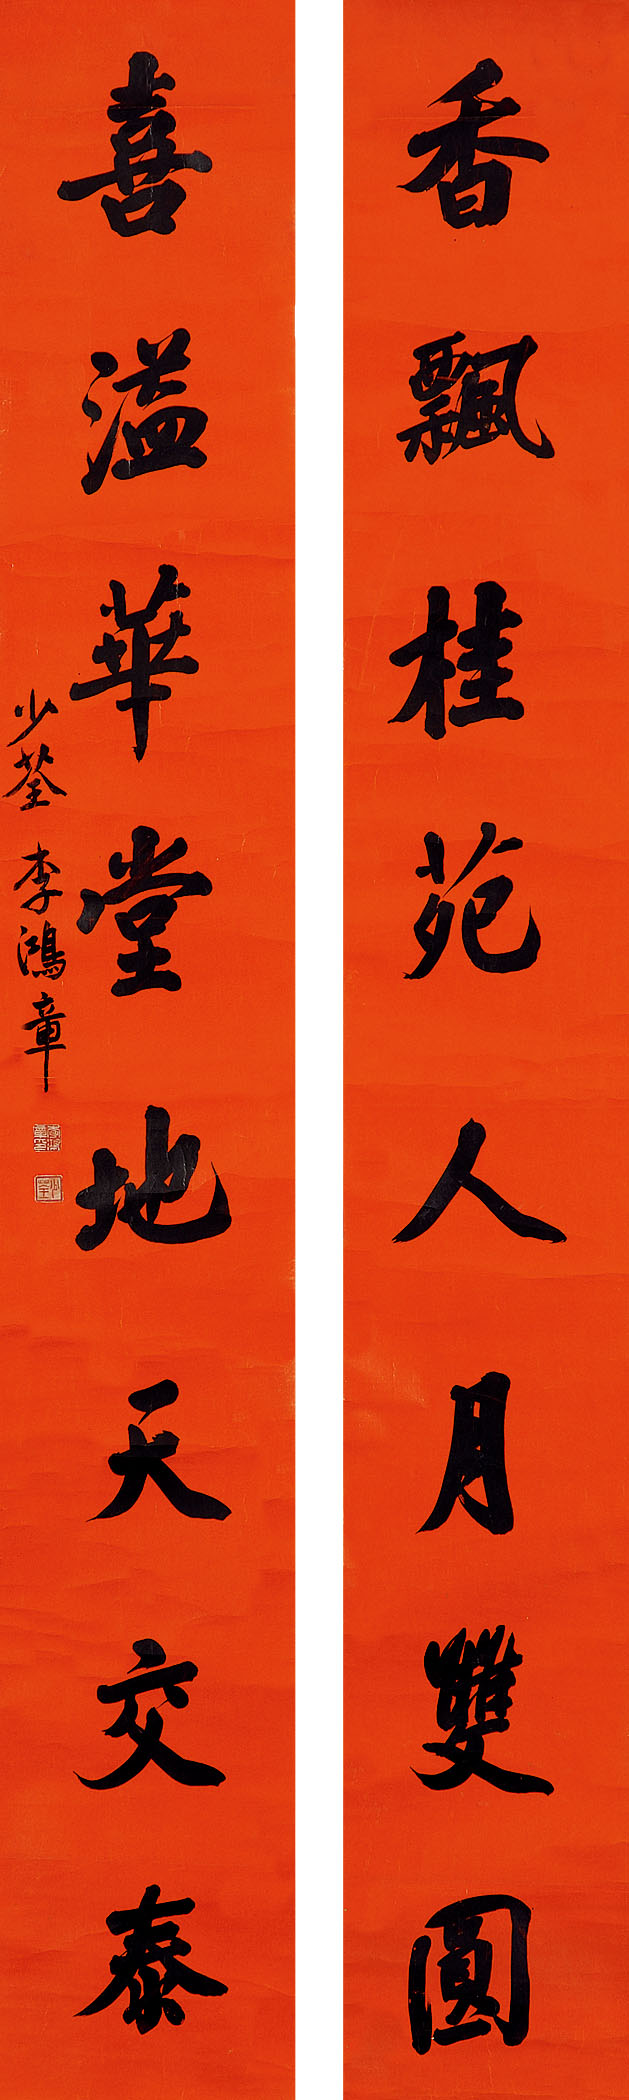 香飄桂苑人月雙圓
喜溢華堂地天交泰
少荃 李鴻章